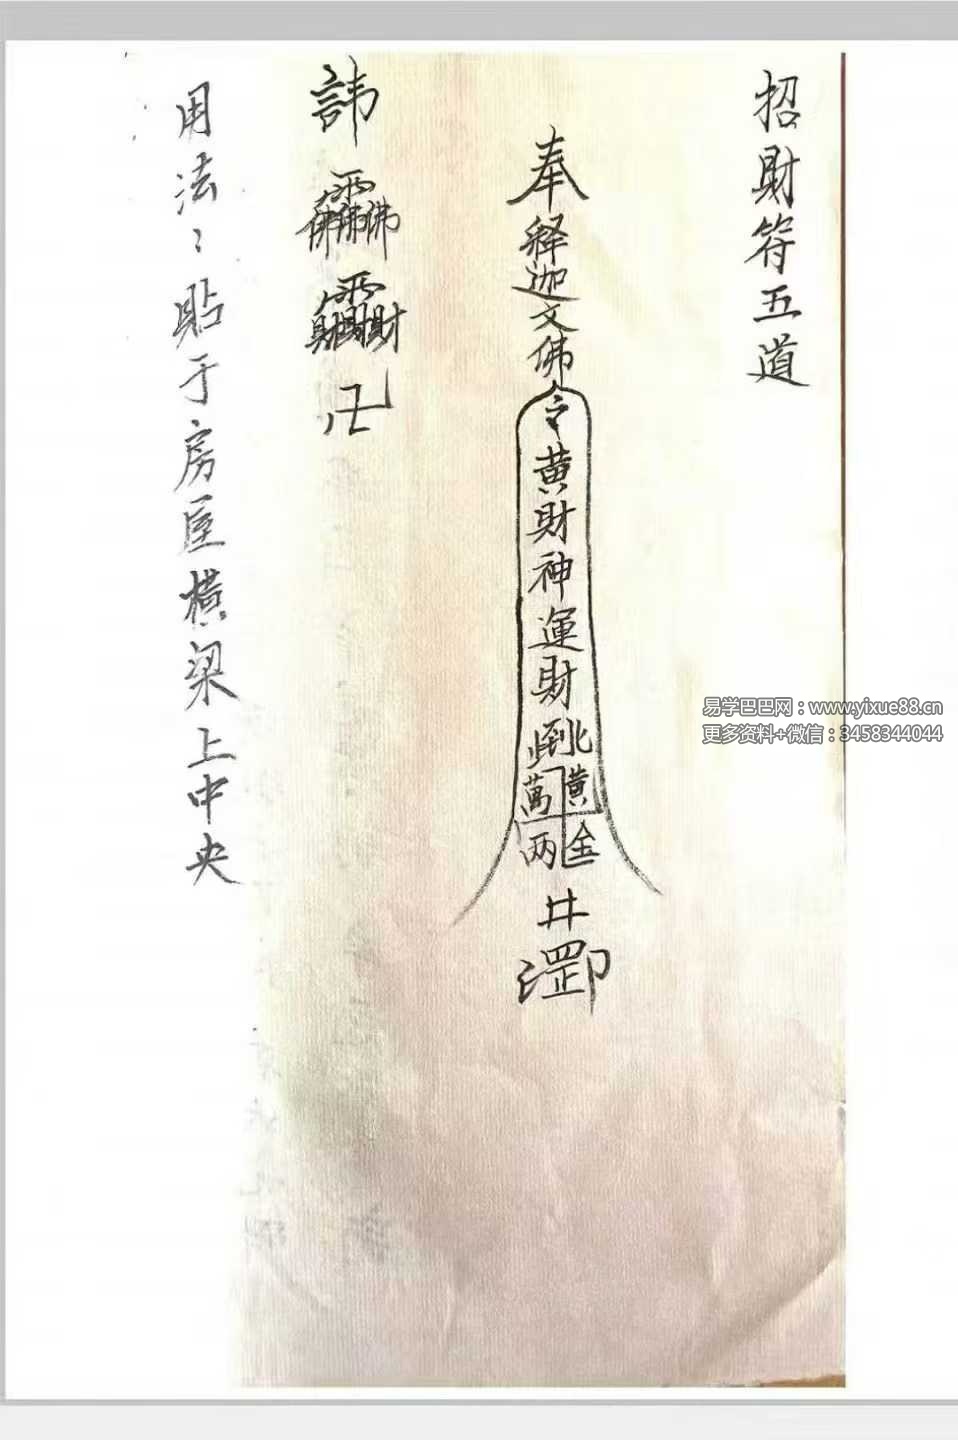 招財符五道
奉释迦文佛令黄財神運財到此黄金萬两井
諱
卍
用法：貼于房屋横梁上中央
易学巴巴网：www.yixue88.cn
更多资料+微信：3458344044